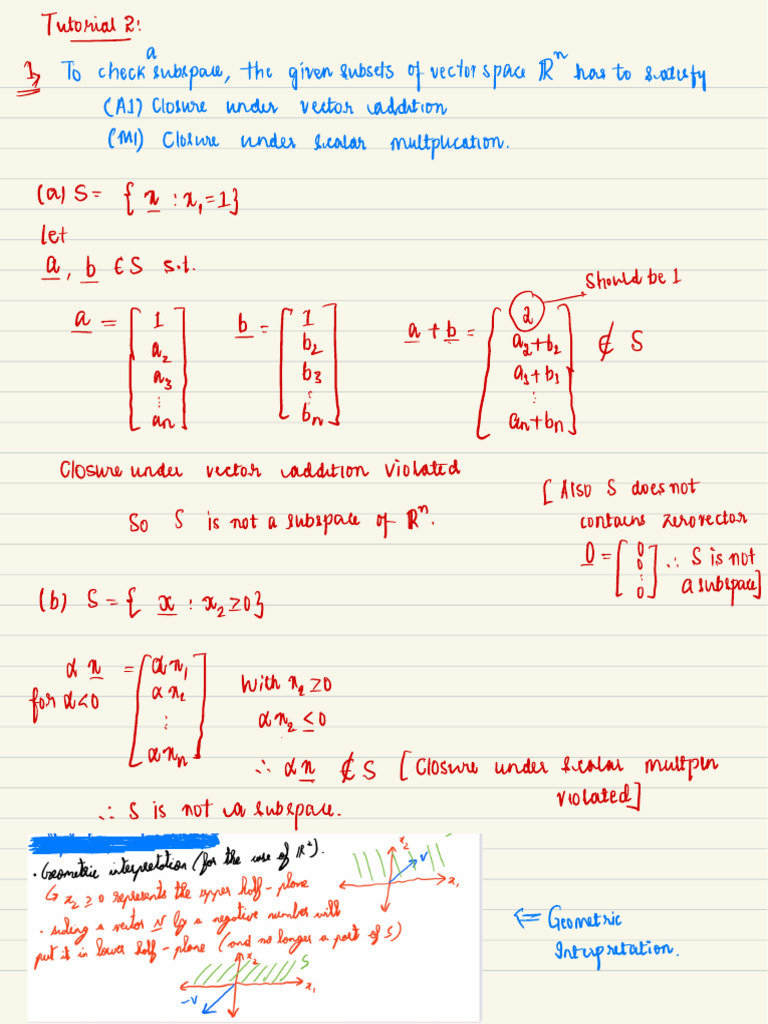 Tutorial 2:
1, To check a subspace, the given subsets of vector space ℝⁿ has to satisfy
(A1) Closure under vector addition
(M1) Closure under scalar multplication.
(a) S = { x : x₁ = 1}
let
a, b ∈ S s.t.
Should be 1
a = [1 a₂ a₃ ⋮ an] b = [1 b₂ b₃ ⋮ bn] a + b = [2 a₂+b₂ a₃+b₃ ⋮ an+bn] ∉ S
Closure under vector addition violated
So S is not a subspace of ℝⁿ.
[Also S does not
contains zero vector
0 = [0 0 ⋮ 0] ∴ S is not
a subspace]
(b) S = { x : x₂ ≥ 0}
α x = [αx₁ αx₂ ⋮ αxn]
for α<0
With x₂ ≥ 0
αx₂ ≤ 0
∴ αx ∉ S [Closure under scalar multpln
violated]
∴ S is not a subspace.
· Geometric interpretation (for the case of ℝ²).
↳ x₂ ≥ 0 represents the upper half-plane
· scaling a vector v by a negative number will
put it in lower half-plane (and no longer a part of S)
x₂
v
x₁
x₂
S
x₁
-v
⇐ Geometric
Interpretation.